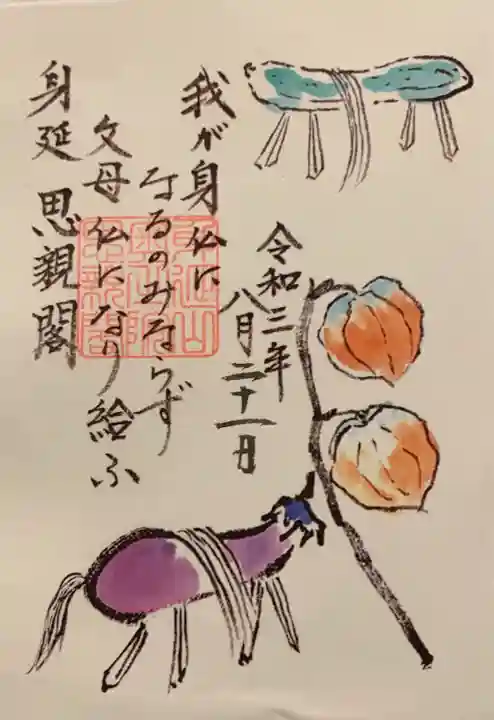 令和三年
八月二十一日
我が身仏に
なるのみならず
父母仏になり給ふ
身延 思親閣